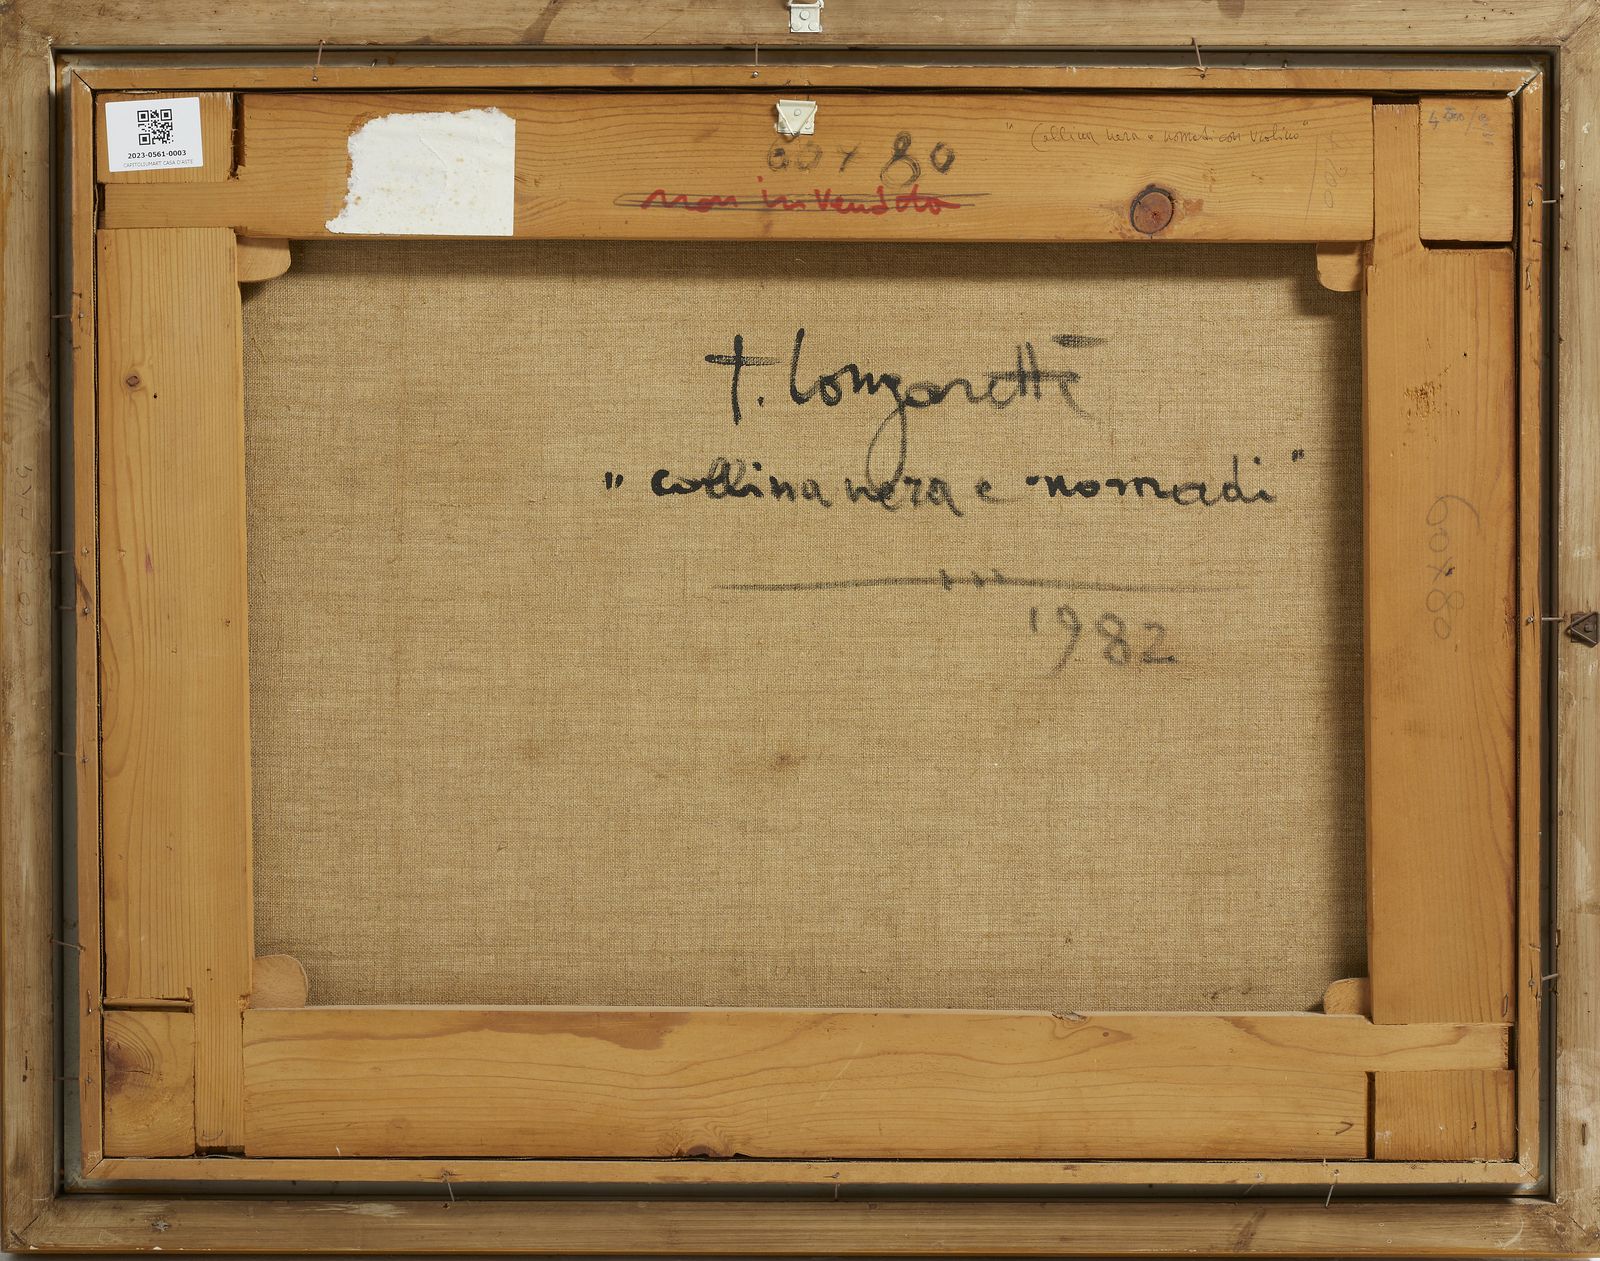 2023-0561-0003
CAPITOLIUMART CASA D'ASTE
60 x 80
non in vendita
"Collina nera e nomadi con violino"
t. longaretti
"collina nera e nomadi"
1982
60x80